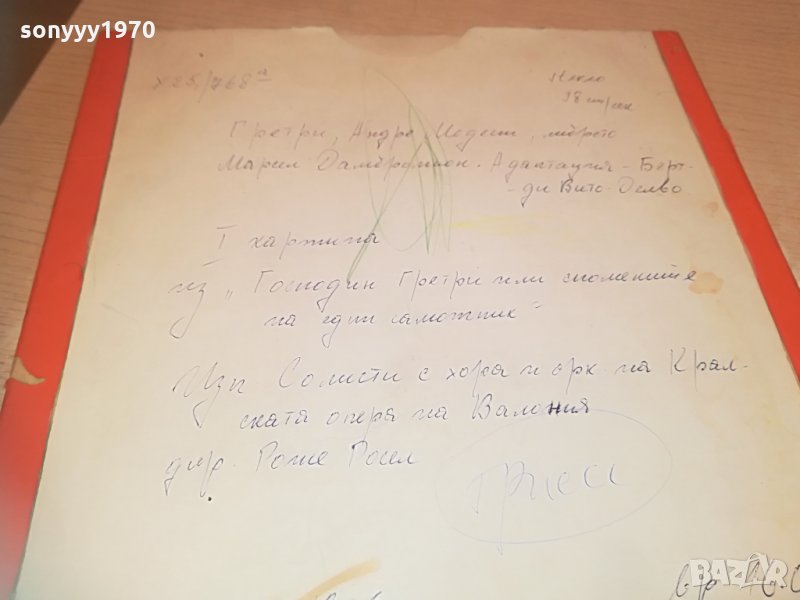 sonyyy1970
X25/768 а
стено
38 см/сек
Гретри, Андре Модест, либрето
Марсел Дамбромион. Адаптация - Берт-
ди Вито-Делво
I картина
из „Господин Гретри или спомените
на един самотник"
Изп. Солисти с хора и орк. на Крал-
ската опера на Валония
дир. Роже Росел
BAZAR
вр